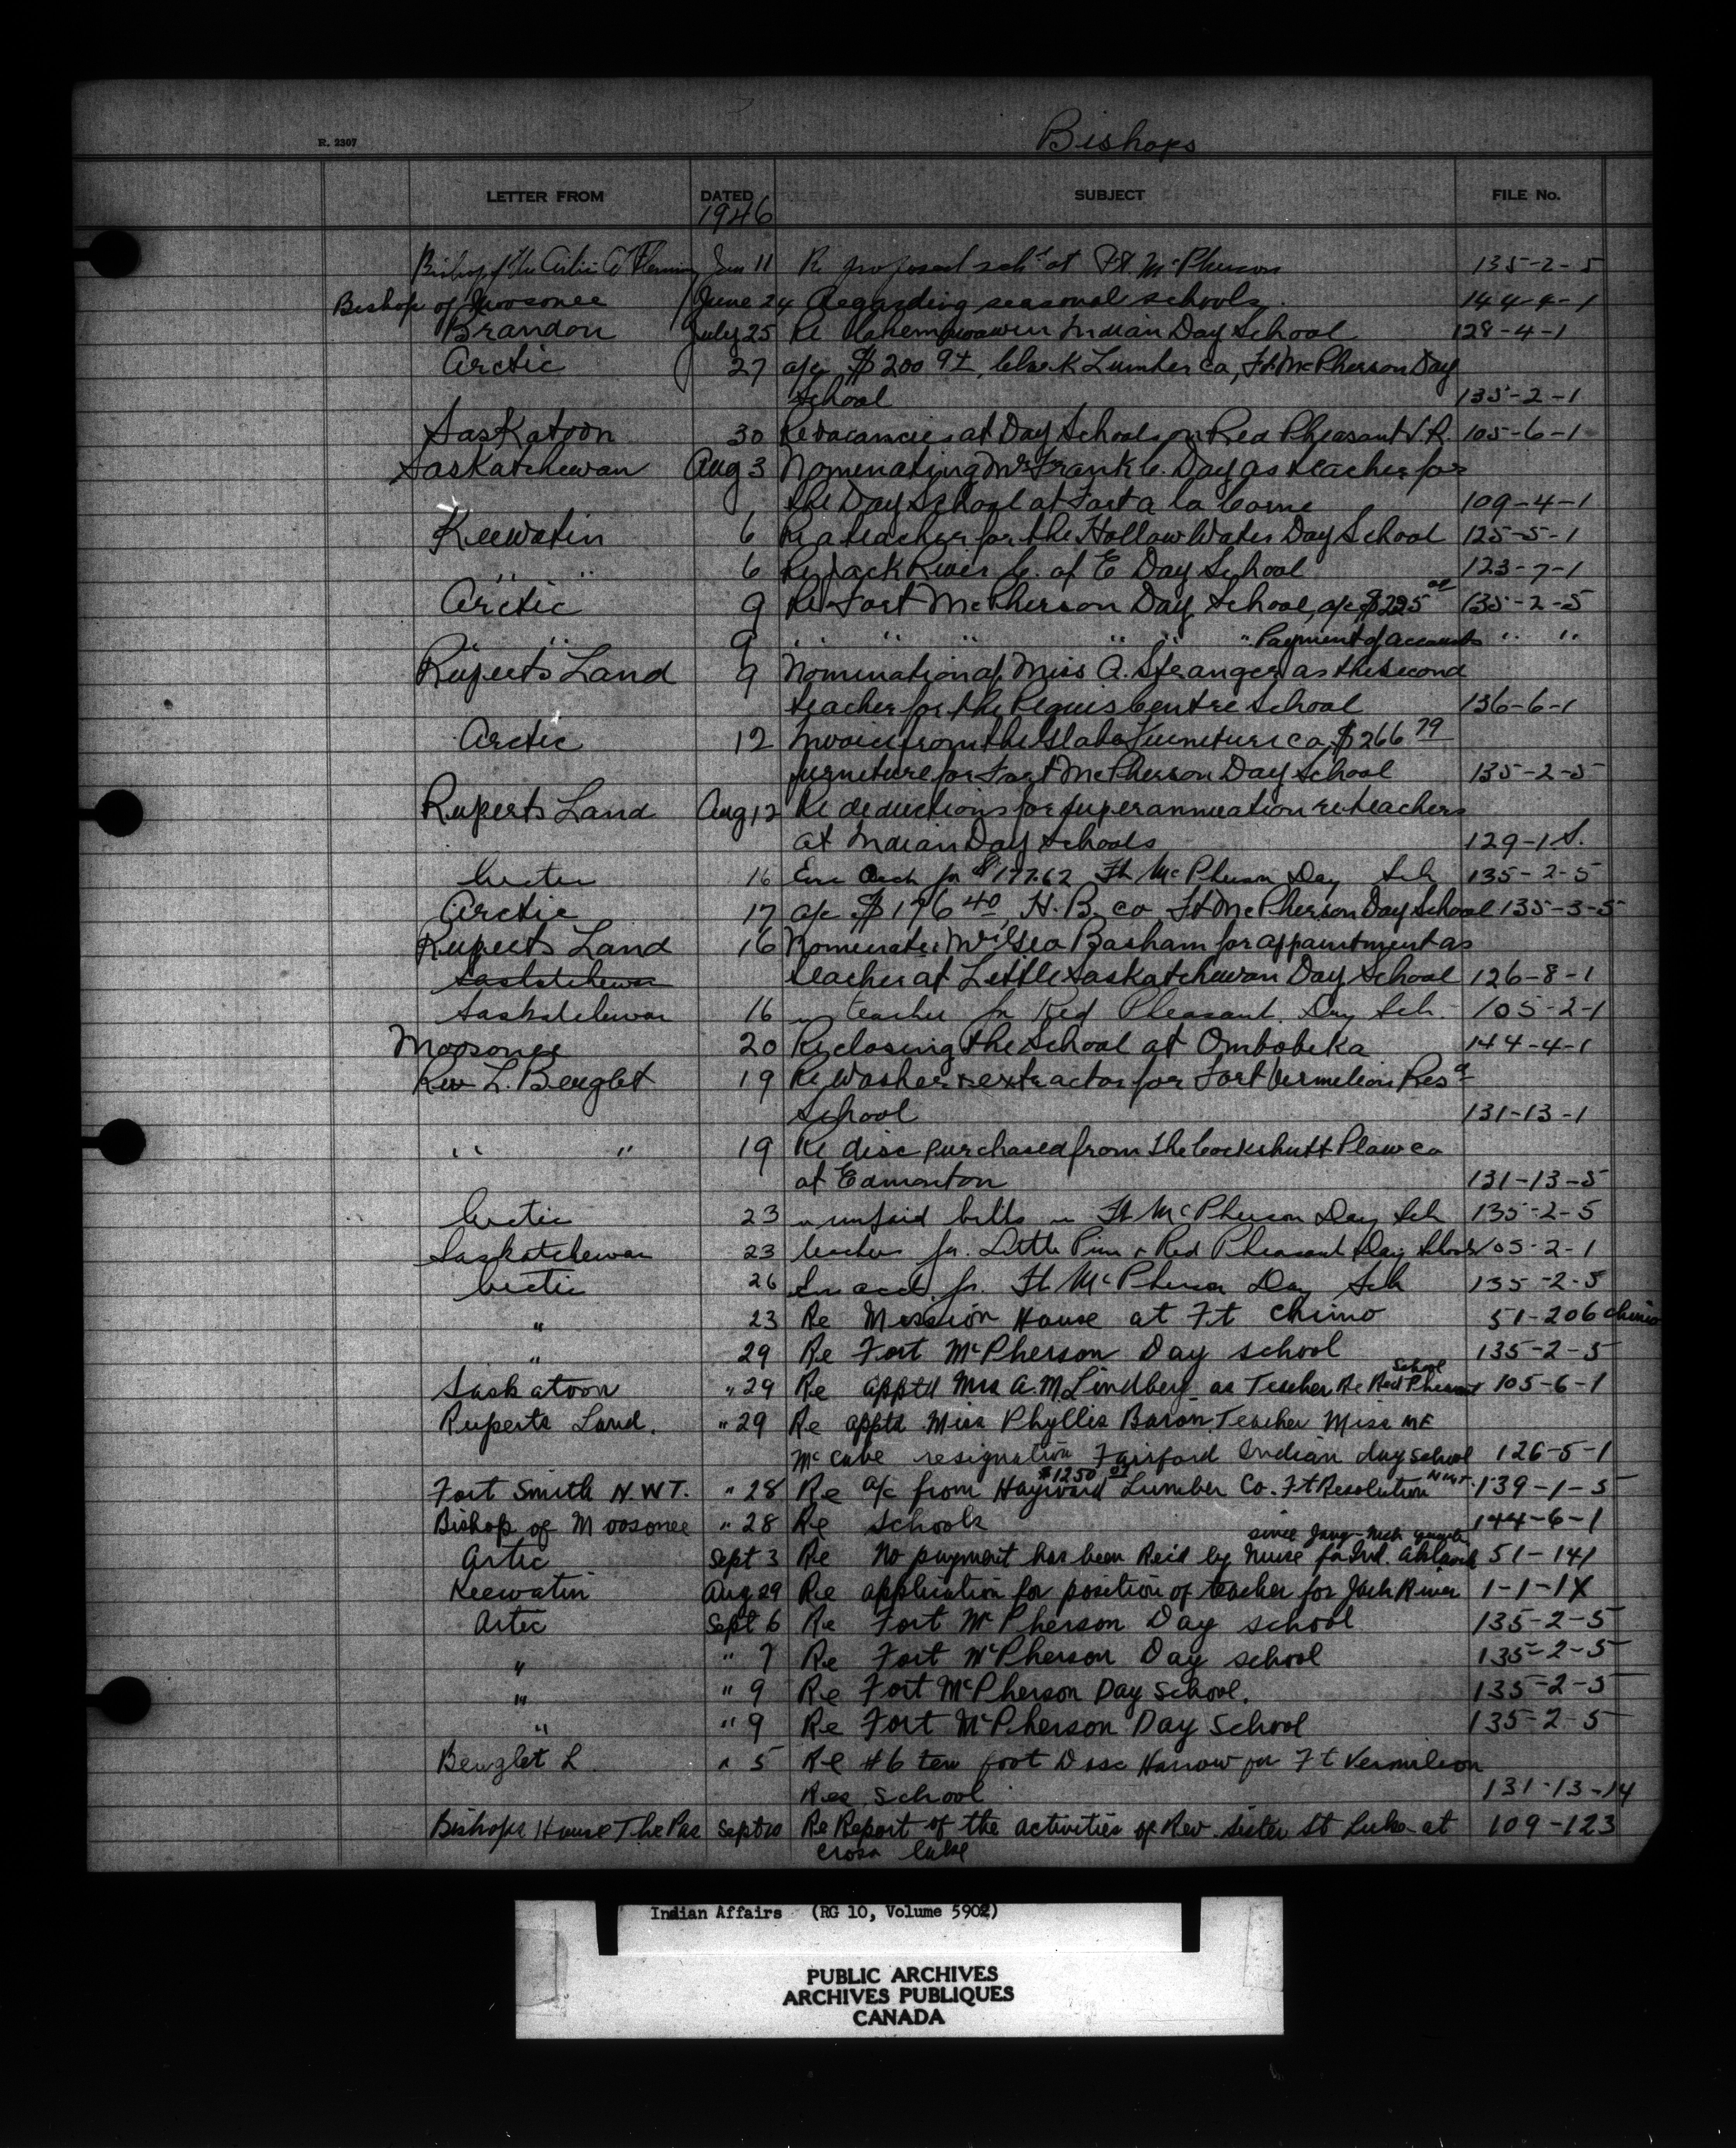 R. 2307
Bishops
LETTER FROM DATED SUBJECT FILE No.
1946
Bishop of the Arctic A Fleming Jan 11 Re proposed sch. at Ft. McPherson 135-2-5
Bishop of Moosonee June 24 Regarding seasonal schools. 144-4-1
Brandon July 25 Re Indian Day School 128-4-1
Arctic 27 a/c $200 Lumber Co, Ft McPherson Day
School 135-2-1
Saskatoon 30 Re vacancies at Day Schools on Red Pheasant I.R. 105-6-1
Saskatchewan Aug 3 Nominating Mr Frank C. Day as teacher for
the Day School at Fort a la Corne 109-4-1
Keewatin 6 Re a teacher for the Hollow Water Day School 125-5-1
" " 6 Re Jack River C. of E Day School 123-7-1
Arctic 9 Re Fort McPherson Day School, a/c $225 135-2-5
" " 9 " " " " " " Payment of accounts " "
Ruperts Land 9 Nomination of Miss A. Stranger as the second
teacher for the Peguis Centre School 136-6-1
Arctic 12 Invoice from the Furniture Co, $266 79
furniture for Fort McPherson Day School 135-2-5
Ruperts Land Aug 12 Re deductions for superannuation re teachers
at Indian Day Schools 129-1 S.
Arctic 16 Enc for $177.62 Ft McPherson Day Sch 135-2-5
Arctic 17 a/c $196 40 H. B. Co Ft McPherson Day School 135-3-5
Ruperts Land 16 Nominates Mr Geo Basham for appointment as
Saskatchewan teacher at Little Saskatchewan Day School 126-8-1
Saskatchewan 16 " teacher for Red Pheasant Day Sch. 105-2-1
Moosonee 20 Re closing the School at Ombobika 144-4-1
Rev L. Beuglet 19 Re washer & extractor for Fort Vermilion Res
School 131-13-1
" " 19 Re disc purchased from the Cockshutt Plow Co
at Edmonton 131-13-5
Arctic 23 " unpaid bills " Ft McPherson Day Sch 135-2-5
Saskatchewan 23 teachers for Little Pine & Red Pheasant Day Schools 105-2-1
Arctic 26 acct. for Ft McPherson Day Sch 135-2-5
" 23 Re Mission House at Ft Chimo 51-206 Chimo
" 29 Re Fort McPherson Day school 135-2-5
Saskatoon " 29 Re apptd Mrs A.M. Lindberg as Teacher Re Red Pheasant School 105-6-1
Ruperts Land. " 29 Re apptd Miss Phyllis Baron Teacher Miss
McCabe resignation Fairford Indian day school 126-5-1
Fort Smith N.W.T. " 28 Re a/c from Hayward $1250 Lumber Co. Ft Resolution N.W.T. 139-1-5
Bishop of Moosonee " 28 Re Schools 144-6-1
Artic Sept 3 Re No payment has been Rec'd by Nurse for Ind. Aklavik since 51-141
Keewatin Aug 29 Re application for position of teacher for Jack River 1-1-1X
Artec Sept 6 Re Fort McPherson Day school 135-2-5
" " 7 Re Fort McPherson Day school 135-2-5
" " 9 Re Fort McPherson Day School. 135-2-5
" " 9 Re Fort McPherson Day School 135-2-5
Beuglet L " 5 Re #6 ten foot Disc Harrow for Ft Vermilion
Res. School 131-13-14
Bishops House The Pas Sept 10 Re Report of the activities of Rev. Sister St Luke at 109-123
Cross Lake
Indian Affairs (RG 10, Volume 5902)
PUBLIC ARCHIVES
ARCHIVES PUBLIQUES
CANADA